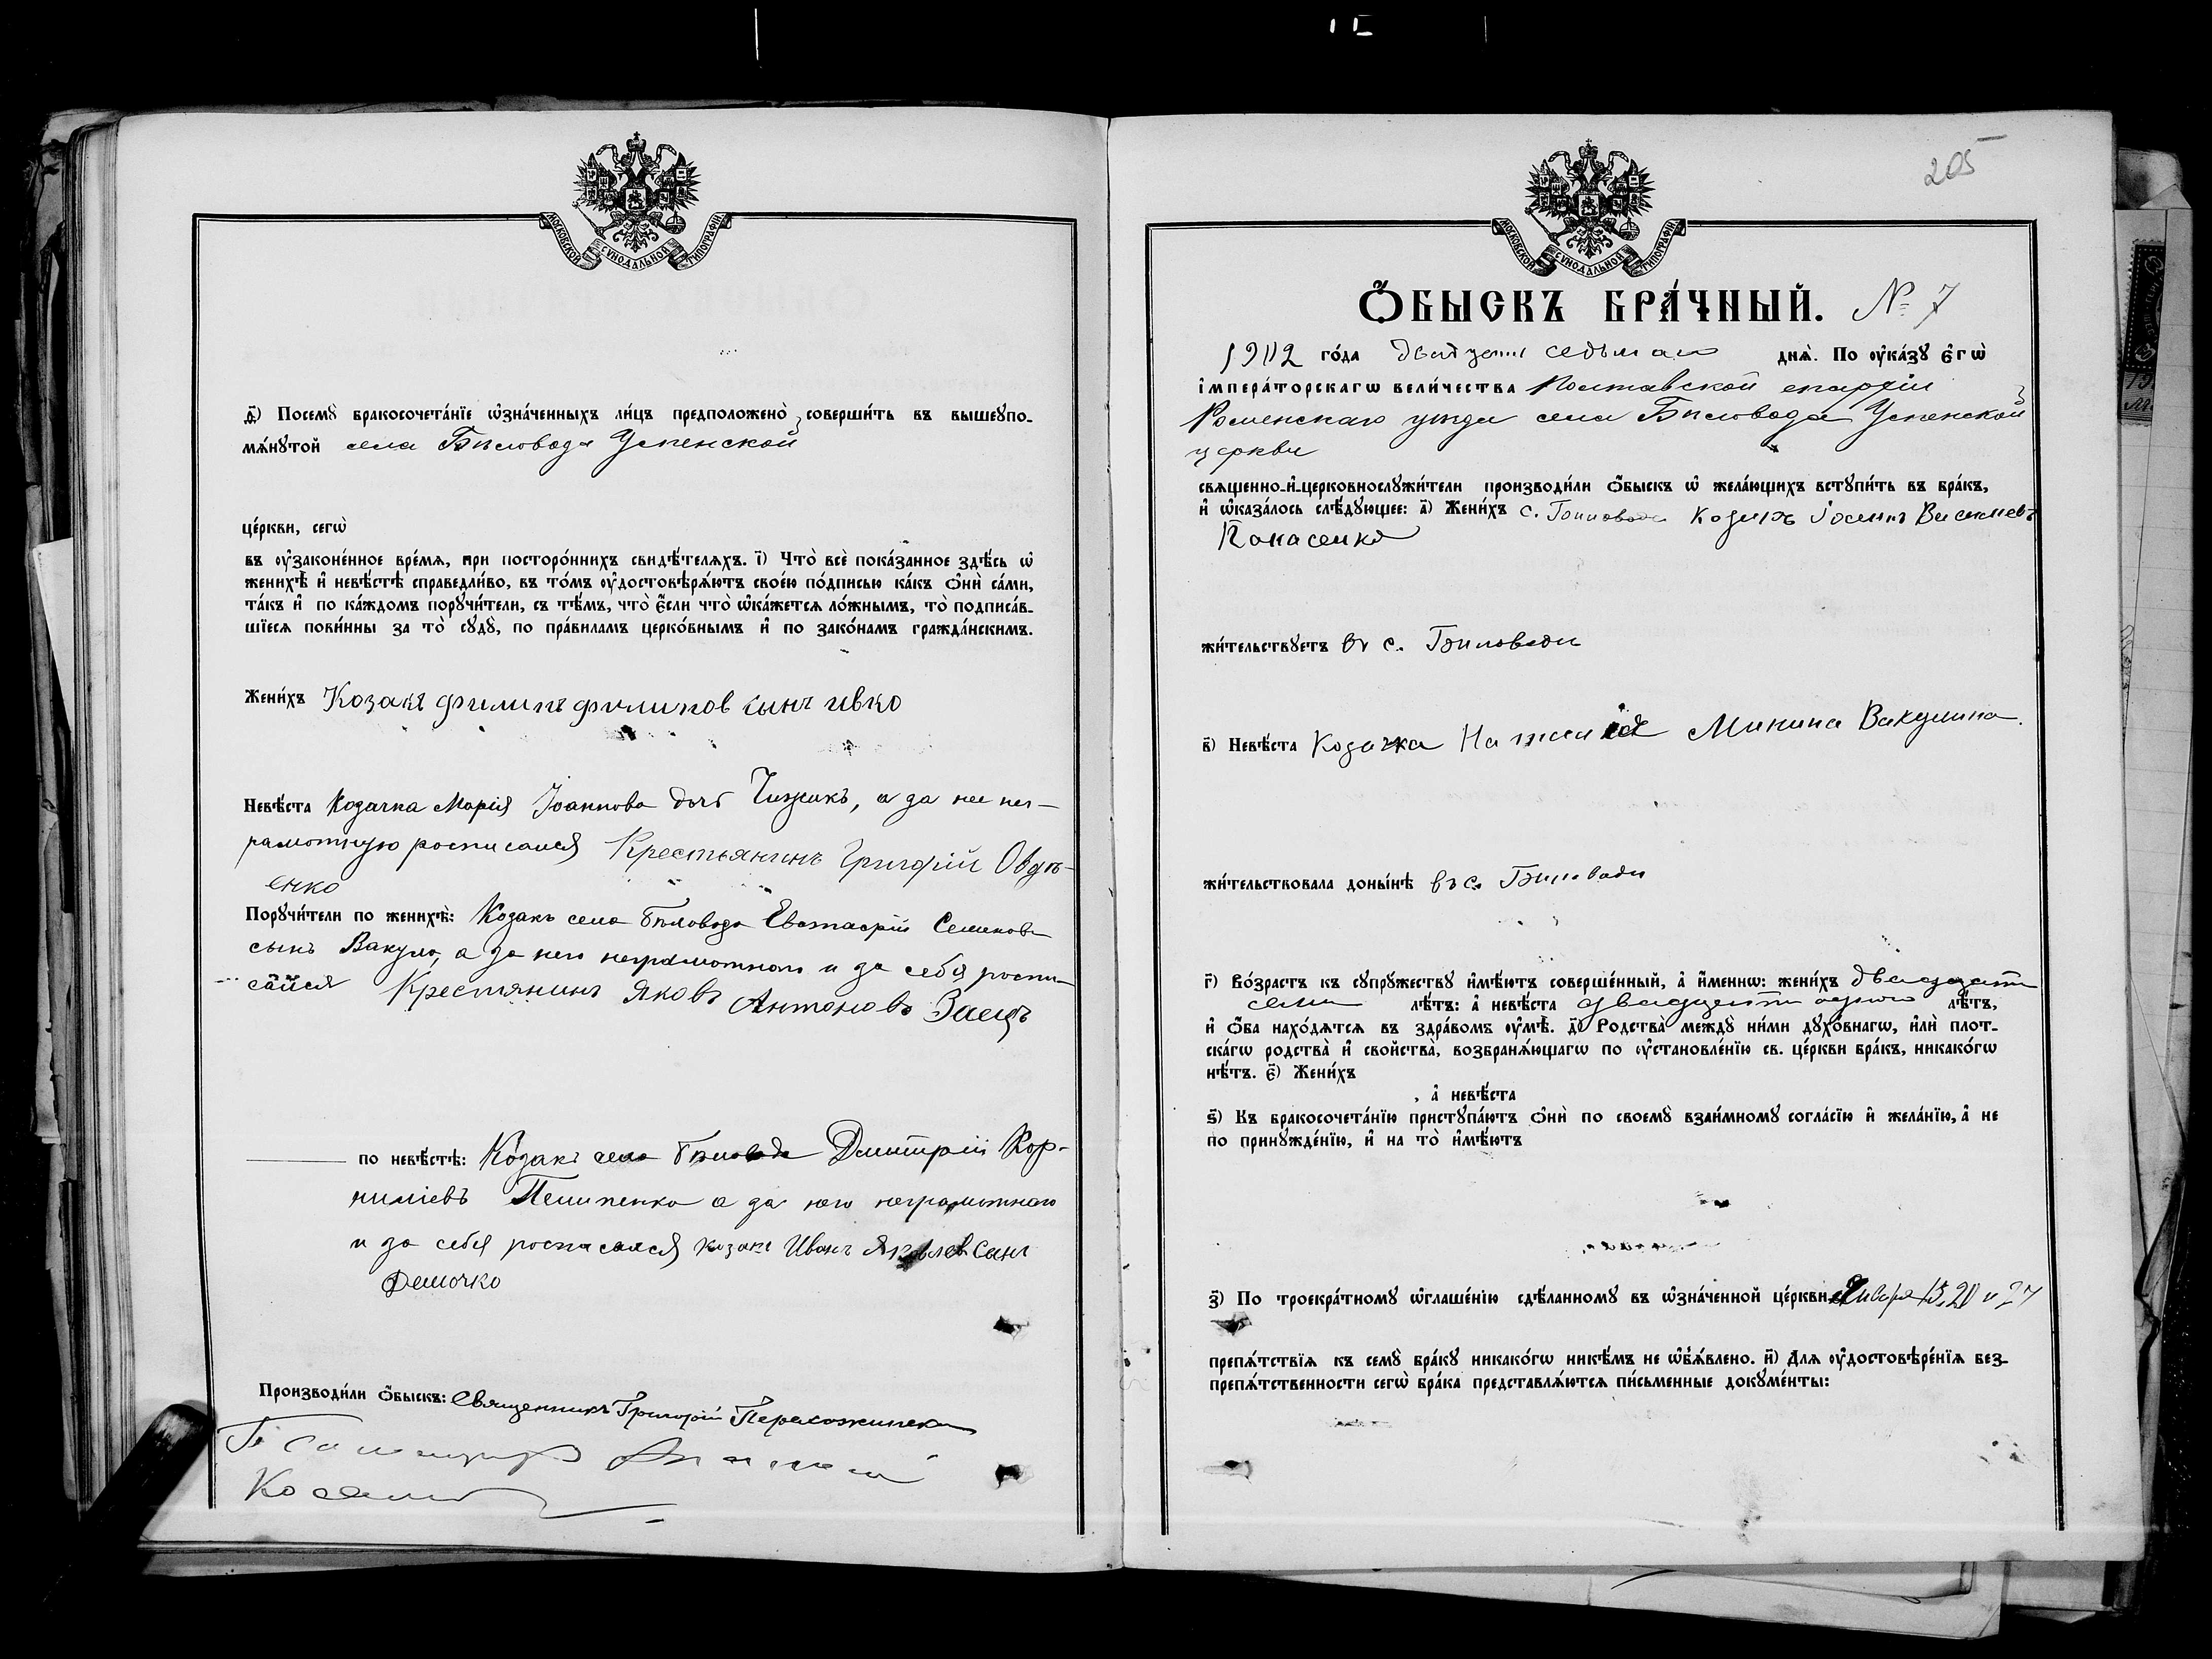 МОСКОВСКОЙ СѴНОДАЛЬНОЙ ТИПОГРАФІИ
ѳ҃) Посемꙋ̀ бракосочета́нїе ѡ҆зна́ченныхъ ли́цъ предположено̀ соверши́ть въ вышеꙋпо-
мѧ́нꙋтой села Бѣловода Успенской
це́ркви, сегѡ̀
въ ᲂу҆законе́нное вре́мѧ, при посторо́ннихъ свидѣ́телѧхъ. і҃) Что̀ всѐ пока́занное здѣ́сь ѡ҆
женихѣ̀ и҆ невѣ́стѣ справедли́во, въ то́мъ ᲂу҆достовѣрѧ́ютъ свое́ю по́дписью ка́къ ѻ҆нѝ са́ми,
та́къ и҆ по ка́ждомъ порꙋчи́тели, съ тѣ́мъ, что̀ є҆́сли что̀ ѡ҆ка́жетсѧ ло́жнымъ, то̀ подписа́в-
шїесѧ пови́нны за то̀ сꙋдꙋ̀, по пра́виламъ церко́внымъ и҆ по зако́намъ гражда́нскимъ.
Жени́хъ Козакъ филипъ филипов сынъ ивко
Невѣ́ста Козачка Марія Іоаннова дочь Чижикъ, а за нее нег-
рамотную росписался Крестьянинъ Григорій Овдѣ-
енко
Порꙋчи́тели по женихѣ̀: Козакъ села Бѣловода Евстафій Семеновъ
сынъ Вакула, а за него неграмотного и за себя роспи-
сался Крестянинъ Яковъ Антоновъ Заецъ
по невѣ́стѣ: Козакъ села Бѣловода Дмитрій Кор-
ниліевъ Пилипенко а за него неграмотнаго
и за себя росписался козакъ Иванъ Яковлев Сынъ
Фемочко
Производи́ли ѻ҆́быскъ: Священникъ Григорій
205
МОСКОВСКОЙ СѴНОДАЛЬНОЙ ТИПОГРАФІИ
Ѻ҆́БЫСКЪ БРА́ЧНЫЙ. № 7
1912 го́да двадцать седьмаго днѧ̀. По ᲂу҆ка́зꙋ є҆гѡ̀
і҆мпера́торскагѡ вели́чества Полтавской епархіи
Роменскаго уѣзда села Бѣловода Успенской
церкви
свѧщенно-и҆-церковнослꙋжи́тели производи́ли ѻ҆́быскъ ѡ҆ жела́ющихъ встꙋпи́ть въ бра́къ,
и҆ ѡ҆каза́лось слѣ́дꙋющее: а҃) Жени́хъ с. Бѣловода Козакъ Іосифъ Васильевъ
Панасенко
жи́тельствꙋетъ въ с. Бѣловоди
в҃) Невѣ́ста Козачка Наталія Минина Вакулина.
жи́тельствовала доны́нѣ въ с. Бѣловоди
г҃) Во́зрастъ къ сꙋпрꙋ́жествꙋ и҆мѣ́ютъ соверше́нный, а҆ и҆́менно: жени́хъ двадцати
семи лѣ́тъ: а҆ невѣ́ста двадцати одного лѣ́тъ,
и҆ ѻ҆́ба нахо́дѧтсѧ въ здра́вомъ ᲂу҆мѣ̀. д҃) Родства̀ междꙋ̀ ни́ми дꙋхо́внагѡ, и҆лѝ плот-
ска́гѡ родства̀ и҆ свойства̀, возбранѧ́ющагѡ по ᲂу҆становле́нїю св. це́ркви бра́къ, никако́гѡ
нѣ́тъ. є҃) Жени́хъ
, а҆ невѣ́ста
ѕ҃) Къ бракосочета́нїю пристꙋпа́ютъ ѻ҆нѝ по своемꙋ̀ взаи́мномꙋ согла́сїю и҆ жела́нїю, а҆ не
по принꙋжде́нїю, и҆ на то̀ и҆мѣ́ютъ
з҃) По троекра́тномꙋ ѡ҆глаше́нїю сдѣ́ланномꙋ въ ѡ҆зна́ченной це́ркви Января 13, 20 и 27
препѧ́тствїѧ къ семꙋ̀ бра́кꙋ никако́гѡ никѣ́мъ не ѡ҆б̾ѧ́влено. и҃) Длѧ ᲂу҆достовѣре́нїѧ без-
препѧ́тственности сегѡ̀ бра́ка представлѧ́ютсѧ пи́сьменные докꙋме́нты: